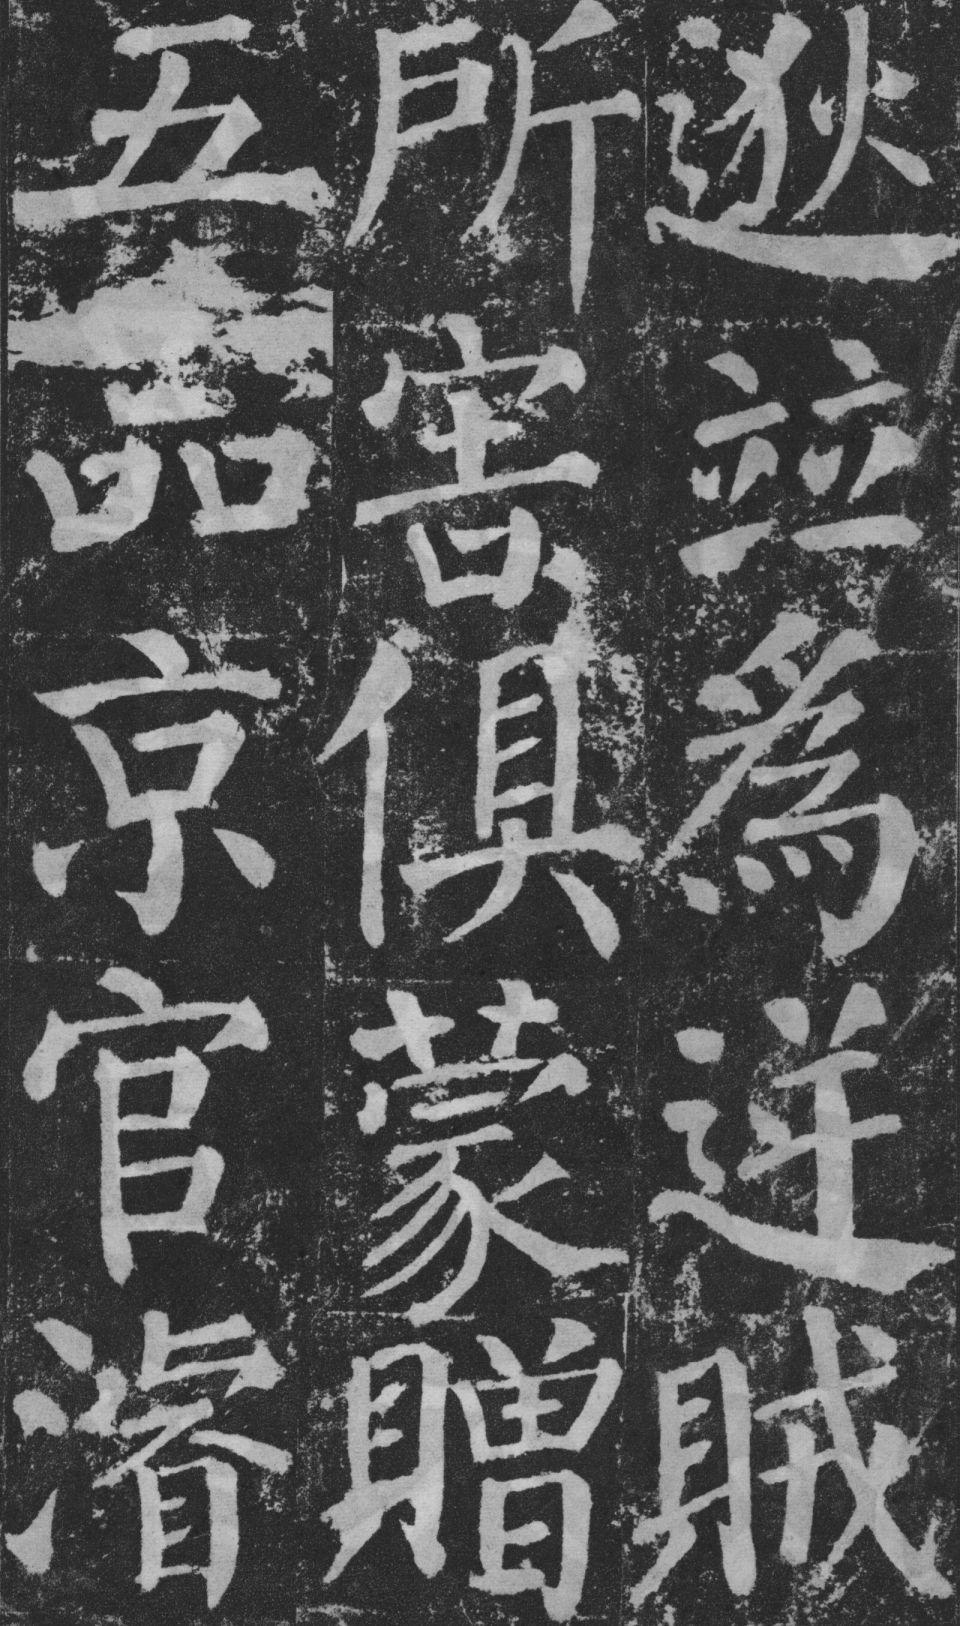 逖並爲逆賊
所害俱蒙贈
五品京官濬